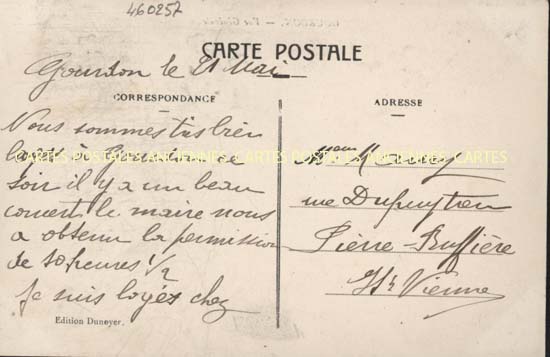 460257
CARTE POSTALE
Gourdon le 21 Mai
CORRESPONDANCE
ADRESSE
Nous sommes très bien
logés à Gourdon ce
CARTES POSTALES ANCIENNES CARTES POSTALES ANCIENNES CARTES
soir il y a un beau
concert le maire nous
a obtenu la permission
de 10 heures 1/2
Je suis loyés chez
rue Dupuytren
Pierre-Buffière
Hte Vienne
Edition Dunoyer.